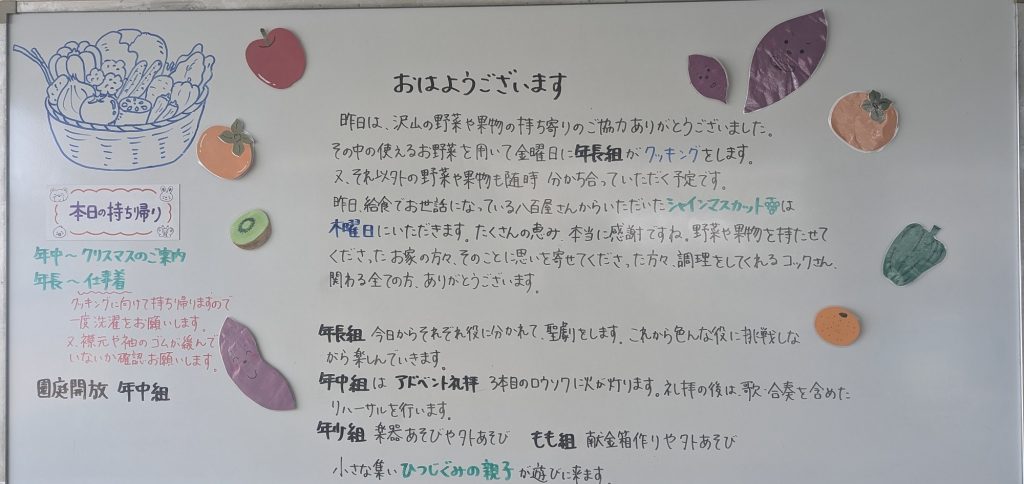 おはようございます
昨日は、沢山の野菜や果物の持ち寄りのご協力ありがとうございました。
その中の使えるお野菜を用いて金曜日に年長組がクッキングをします。
又、それ以外の野菜や果物も随時 分かち合っていただく予定です。
昨日、給食でお世話になっている八百屋さんからいただいたシャインマスカットは
木曜日にいただきます。たくさんの恵み、本当に感謝ですね。野菜や果物を持たせて
くださったお家の方々、そのことに思いを寄せてくださった方々、調理をしてくれるコックさん、
関わる全ての方、ありがとうございます。
年長組 今日からそれぞれ役に分かれて、聖劇をします。これから色んな役に挑戦しな
がら楽しんでいきます。
年中組は アドベント礼拝 3本目のロウソクに火が灯ります。礼拝の後は、歌・合奏を含めた
リハーサルを行います。
年少組 楽器あそびや外あそび もも組 献金箱作りや外あそび
小さな集い ひつじぐみの親子が遊びに来ます。
本日の持ち帰り
年中〜クリスマスのご案内
年長〜仕事着
クッキングに向けて持ち帰りますので
一度洗濯をお願いします。
又、襟元や袖のゴムが緩んで
いないか確認お願いします。
園庭開放 年中組